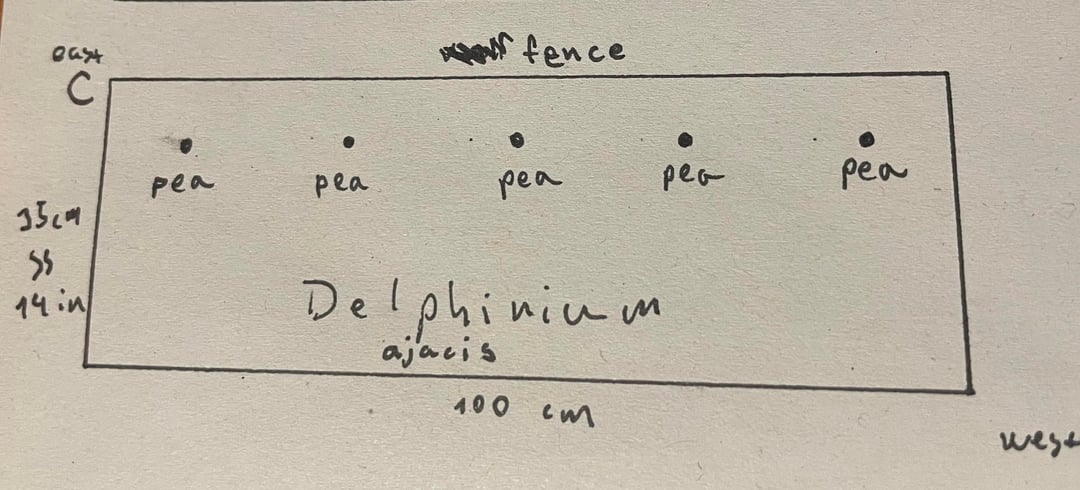 east
fence
C
pea pea pea pea pea
35cm
14 in
Delphinium
ajacis
100 cm
west